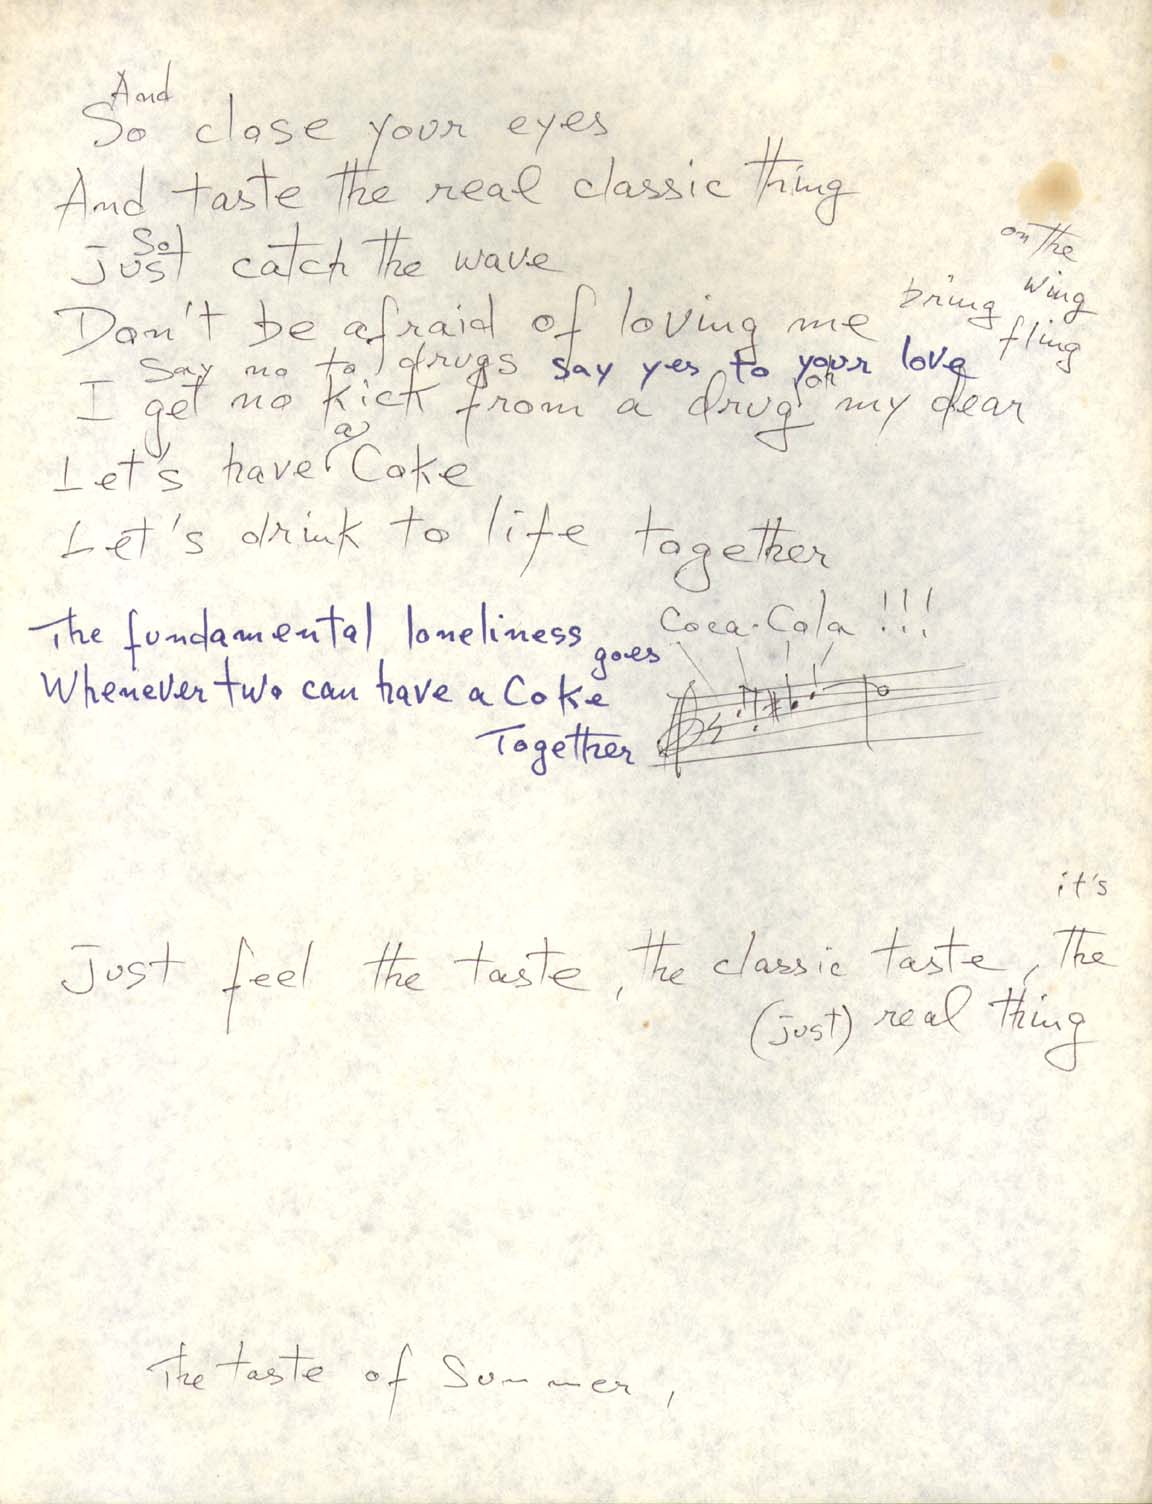 And
So close your eyes
And taste the real classic thing
So
just catch the wave
on the
wing
bring
fling
Don't be afraid of loving me
Say no to drugs say yes to your love
I get no kick from a drug oh my dear
a
Let's have Coke
Let's drink to life together
Coca-Cola !!!
The fundamental loneliness
goes
Whenever two can have a Coke
Together
it's
Just feel the taste, the classic taste, the
(just) real thing
The taste of Summer,